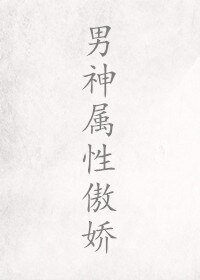 男神属性傲娇